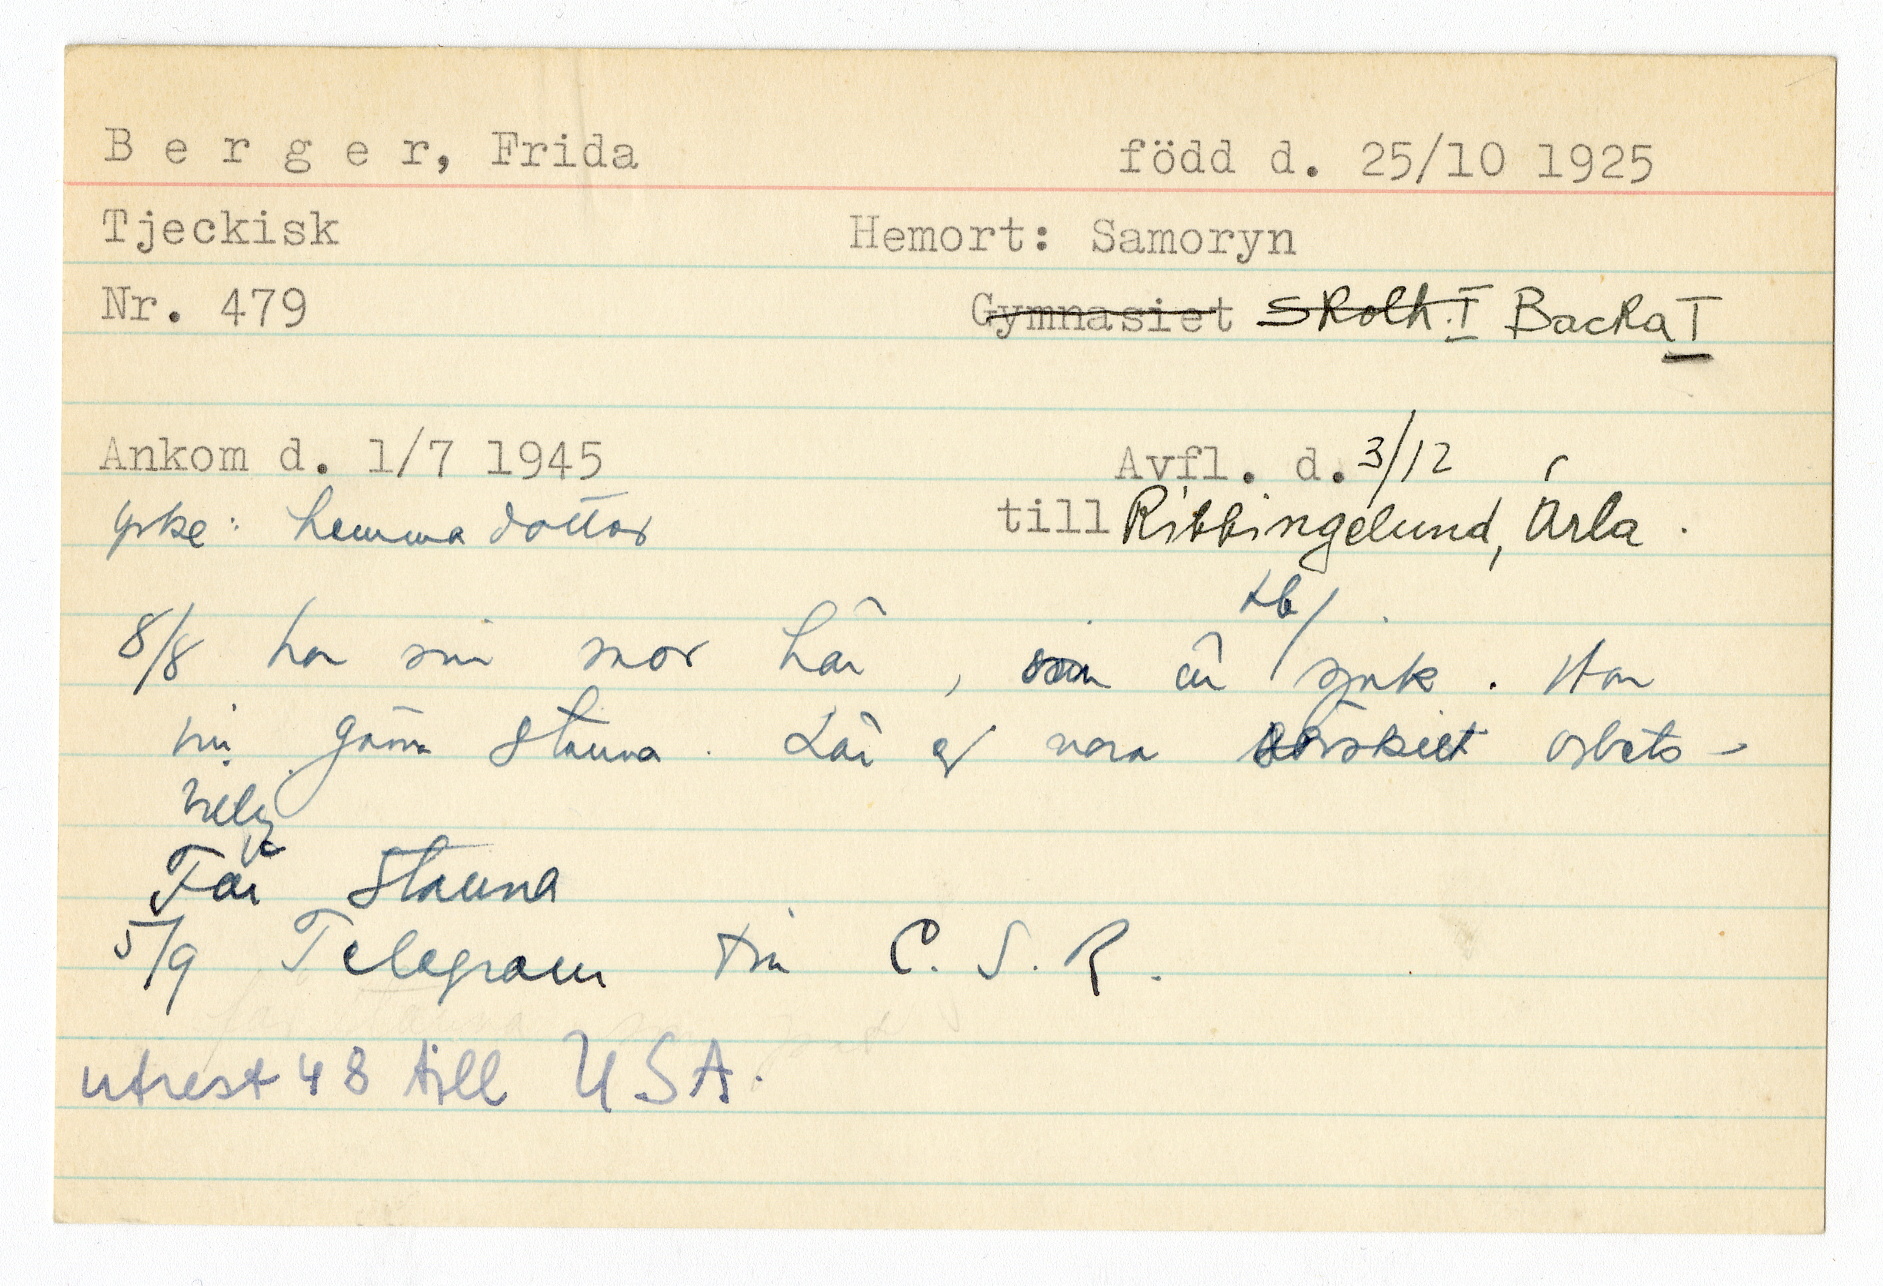 Berger, Frida född d. 25/10 1925
Tjeckisk Hemort: Samoryn
Nr. 479 Gymnasiet Skolh. I Backa I
Ankom d. 1/7 1945 Avfl. d. 3/12
yrke: hemma dotter till Ribbingelund, Ärla.
tb/
8/8 har sin mor här, som är sjuk. Hon
vill gärna stanna. Lär ej vara särskilt arbets-
villig
Får stanna
5/9 Telegram till C.S.R.
utrest 48 till USA.